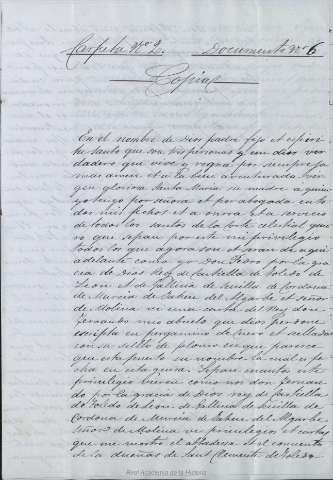 Carpeta Nº 2. Documento Nº 6
Copia
En el nombre de Dios padre fijo et espiri-
tu santo que son tres personas y un dios ver-
dadero que vive y regna por siempre ja-
mas amen et a la bien aventurada vir-
gen gloriosa Santa Maria su madre a quien
yo tengo por señora et por abogada en to-
dos mis fechos et a onra et a servicio
de todos los santos de la corte celestial quie-
ro que sepan por este mi privilegio
todos los que agora son et seran de aqui
adelante como yo Don Pedro por la gra-
cia de Dios Rey de Castiella de Toledo de
Leon et de Gallicia de Sevilla de Cordova
de Murcia de Jahen del Algarbe et señor
de Molina vi una carta del Rey don
Fernando mio abuelo que dios perdone
escripta en pergamino de cuero et sellada
con su sello de plomo en que parece
que esta puesto su nombre la cual es fe-
cha en esta guisa. Sepan cuantos este
privilegio vieren como nos don Fernan-
do por la gracia de Dios rey de Castiella
de Toledo de Leon de Gallicia de Sevilla de
Cordova de Murcia de Jahen del Algarbe
Señor de Molina vi privilegios et cartas
que me mostró el abadesa et el convento
de la dueñas de Sant Clemente de Toledo
Real Academia de la Historia